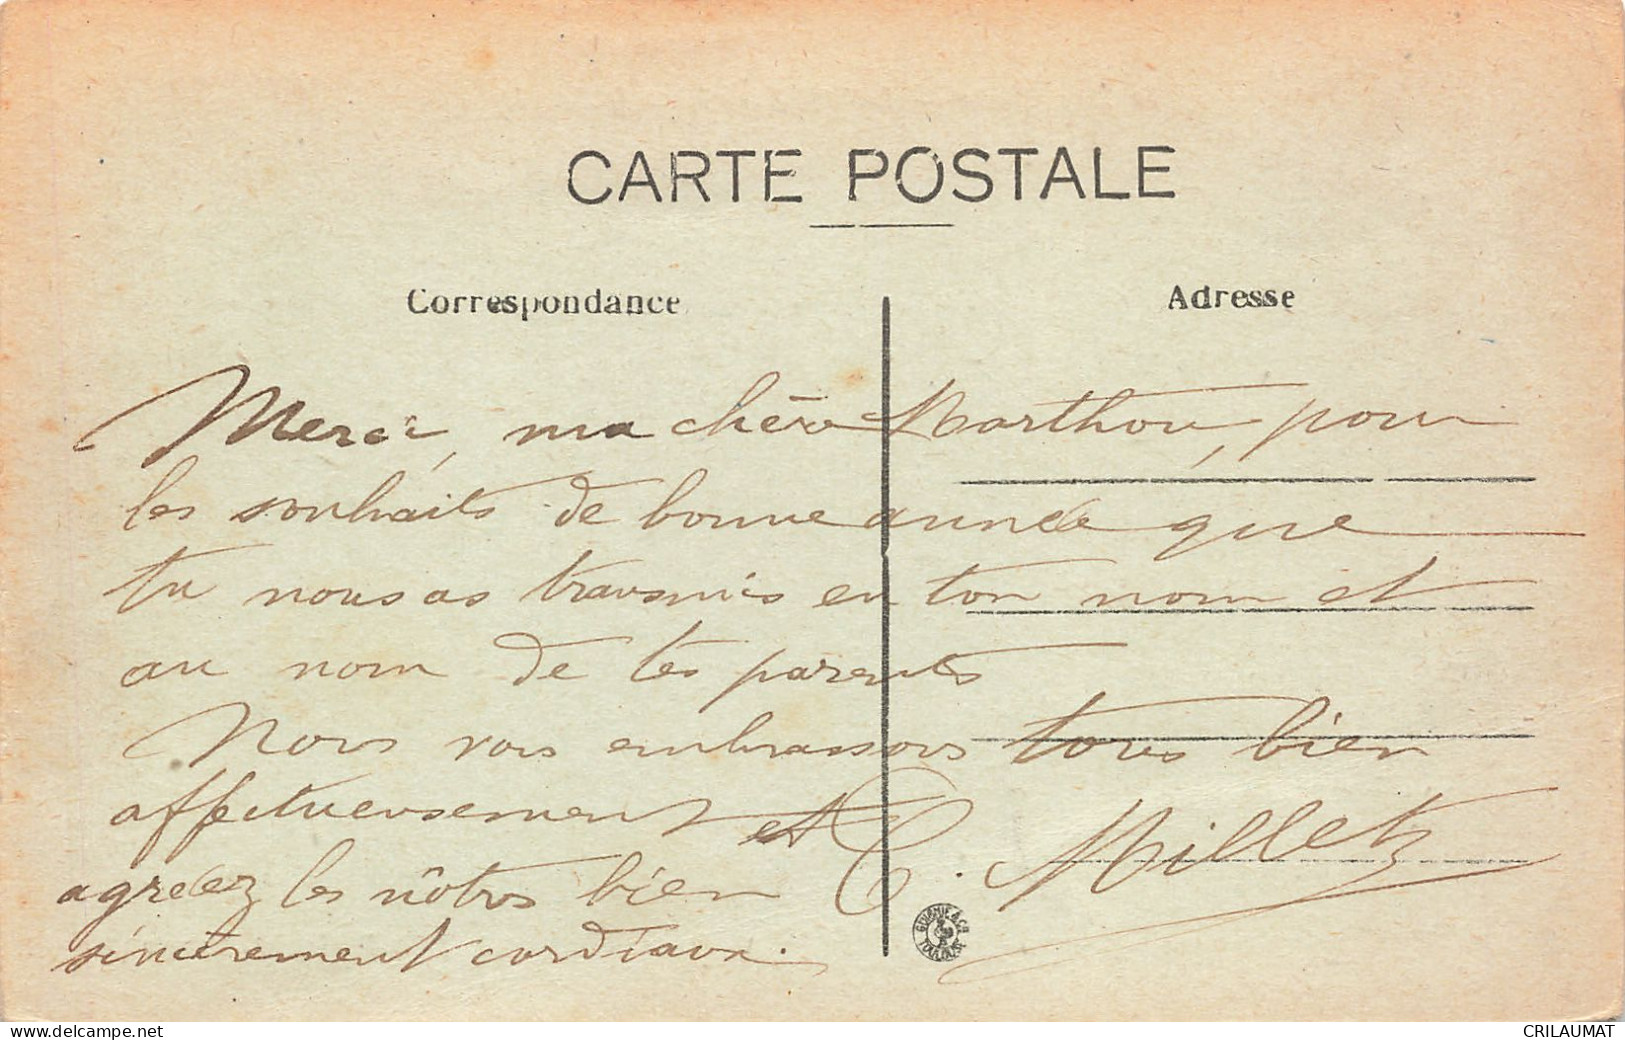 CARTE POSTALE
Correspondance
Adresse
Merci, ma chère Marthou, pour
les souhaits de bonne année que
tu nous as transmis en ton nom et
au nom de tes parents
Nous vous embrassons tous bien
affectueusement et
agréez les nôtres bien
sincèrement cordiaux.
C. Millet
TOULOUSE
www.delcampe.net
CRILAUMAT